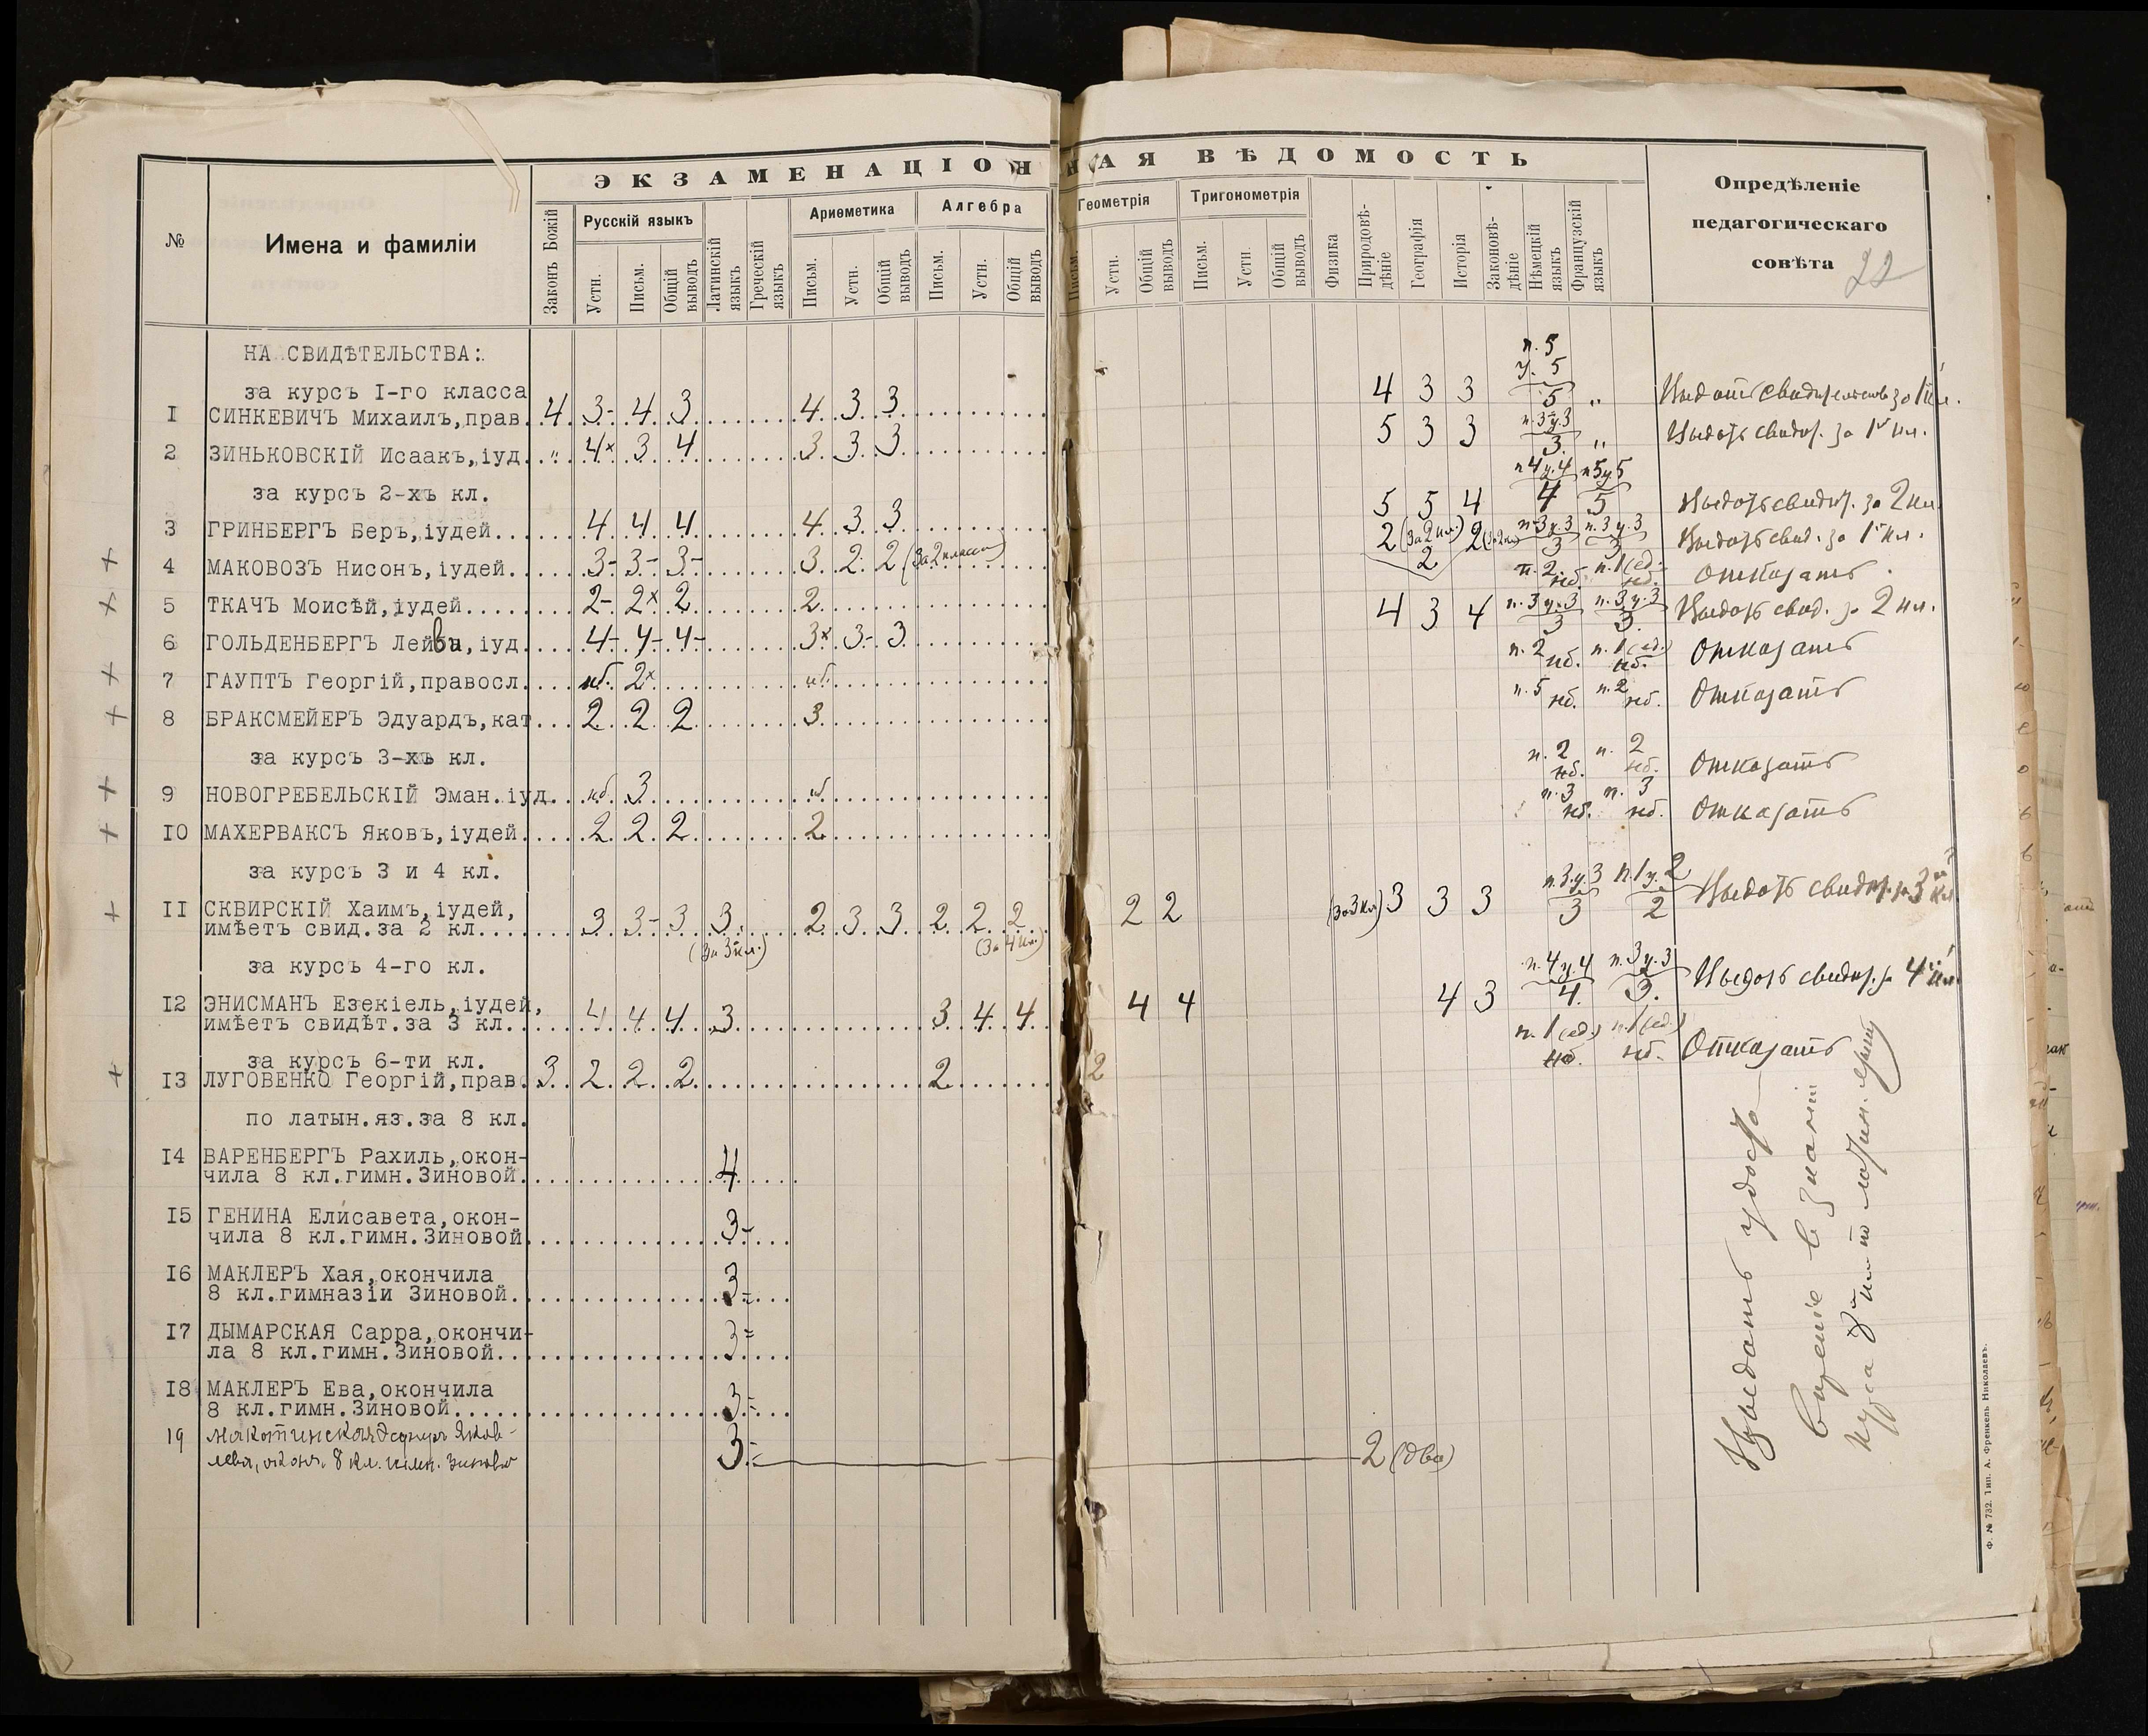 ЭКЗАМЕНАЦІОННАЯ ВѢДОМОСТЬ
№
Имена и фамиліи
Законъ Божій
Русскій языкъ
Устн.
Письм.
Общій выводъ
Латинскій языкъ
Греческій языкъ
Ариѳметика
Письм.
Устн.
Общій выводъ
Алгебра
Письм.
Устн.
Общій выводъ
Геометрія
Письм.
Устн.
Общій выводъ
Тригонометрія
Письм.
Устн.
Общій выводъ
Физика
Природовѣ-
дѣніе
Географія
Исторія
Законовѣ-
дѣніе
Нѣмецкій языкъ
Французскій языкъ
Опредѣленіе
педагогическаго
совѣта
22
НА СВИДѢТЕЛЬСТВА:
за курсъ I-го класса
I СИНКЕВИЧЪ Михаилъ,прав. 4 3- 4 3 4 3 3 4 3 3 п. 5 у. 5 5 " Выдать свидѣтельство за 1й кл.
2 ЗИНЬКОВСКІЙ Исаакъ,іуд. " 4× 3 4 3 3 3 5 3 3 п 3 у.3 3 " Выдать свидѣт. за 1й кл.
за курсъ 2-хъ кл.
3 ГРИНБЕРГЪ Беръ,іудей 4 4 4 4 3 3 5 5 4 п 4 у.4 4 п 5 у 5 5 Выдать свидѣт. за 2 кл.
+ 4 МАКОВОЗЪ Нисонъ,іудей 3- 3- 3- 3 2 2 (за 2 класса) 2 (за 2 кл.) 2 2 (за 2 кл) п 3 у.3 3 п. 3 у. 3 3 Выдать свид. за 1й кл.
+ 5 ТКАЧЪ Моисѣй,іудей 2- 2× 2 2 п. 2. нб. п. 1 (ед.) нб. Отказать.
+ 6 ГОЛЬДЕНБЕРГЪ Лейба,іуд. 4- 4- 4- 3× 3- 3 4 3 4 п. 3 у. 3 3 п. 3 у. 3 3. Выдать свид. за 2 кл.
+ 7 ГАУПТЪ Георгій,правосл. нб. 2× нб. п. 2 нб. п. 1 (ед.) нб. Отказать
+ 8 БРАКСМЕЙЕРЪ Эдуардъ,кат. 2 2 2 3 п. 5 нб. п. 2 нб. Отказать
за курсъ 3-хъ кл.
+ 9 НОВОГРЕБЕЛЬСКІЙ Эман.іуд. нб. 3 нб п. 2 нб. п. 2 нб. Отказать
+ I0 МАХЕРВАКСЪ Яковъ,іудей 2 2 2 2 п. 3 нб. п. 3 нб. Отказать
за курсъ 3 и 4 кл.
+ II СКВИРСКІЙ Хаимъ,іудей, 3 3- 3 3 2 3 3 2 2 2 2 2 (за 3 кл) 3 3 3 п. 3 у. 3 3 п. 1 у. 2 2 Выдать свидѣт. за 3й кл.
имѣетъ свид.за 2 кл. (за 3й кл.) (за 4 кл.)
за курсъ 4-го кл.
I2 ЭНИСМАНЪ Езекіель,іудей, 4 4 4 3 3 4 4 4 4 4 3 п. 4 у. 4 4. п. 3 у. 3 3. Выдать свидѣт. за 4й кл.
имѣетъ свидѣт.за 3 кл.
за курсъ 6-ти кл.
+ I3 ЛУГОВЕНКО Георгій,прав. 3 2 2 2 2 2 п. 1 (ед.) нб. п. 1 (ед.) нб. Отказать
по латын.яз.за 8 кл.
I4 ВАРЕНБЕРГЪ Рахиль,окон- 4
чила 8 кл.гимн.Зиновой.
I5 ГЕНИНА Елисавета,окон- 3-
чила 8 кл.гимн.Зиновой
I6 МАКЛЕРЪ Хая,окончила 3=
8 кл.гимназіи Зиновой.
I7 ДЫМАРСКАЯ Сарра,окончи- 3=
ла 8 кл.гимн.Зиновой
I8 МАКЛЕРЪ Ева,окончила 3=
8 кл.гимн.Зиновой
19 Яков- 3= 2 (два)
лева, оконч. 8 кл. гимн. Зиновой
Выдать удосто-
вѣреніе в знаніи
курса 8й кл по латин. языку
Ф. № 732. Тип. А. Френкель Николаевъ.